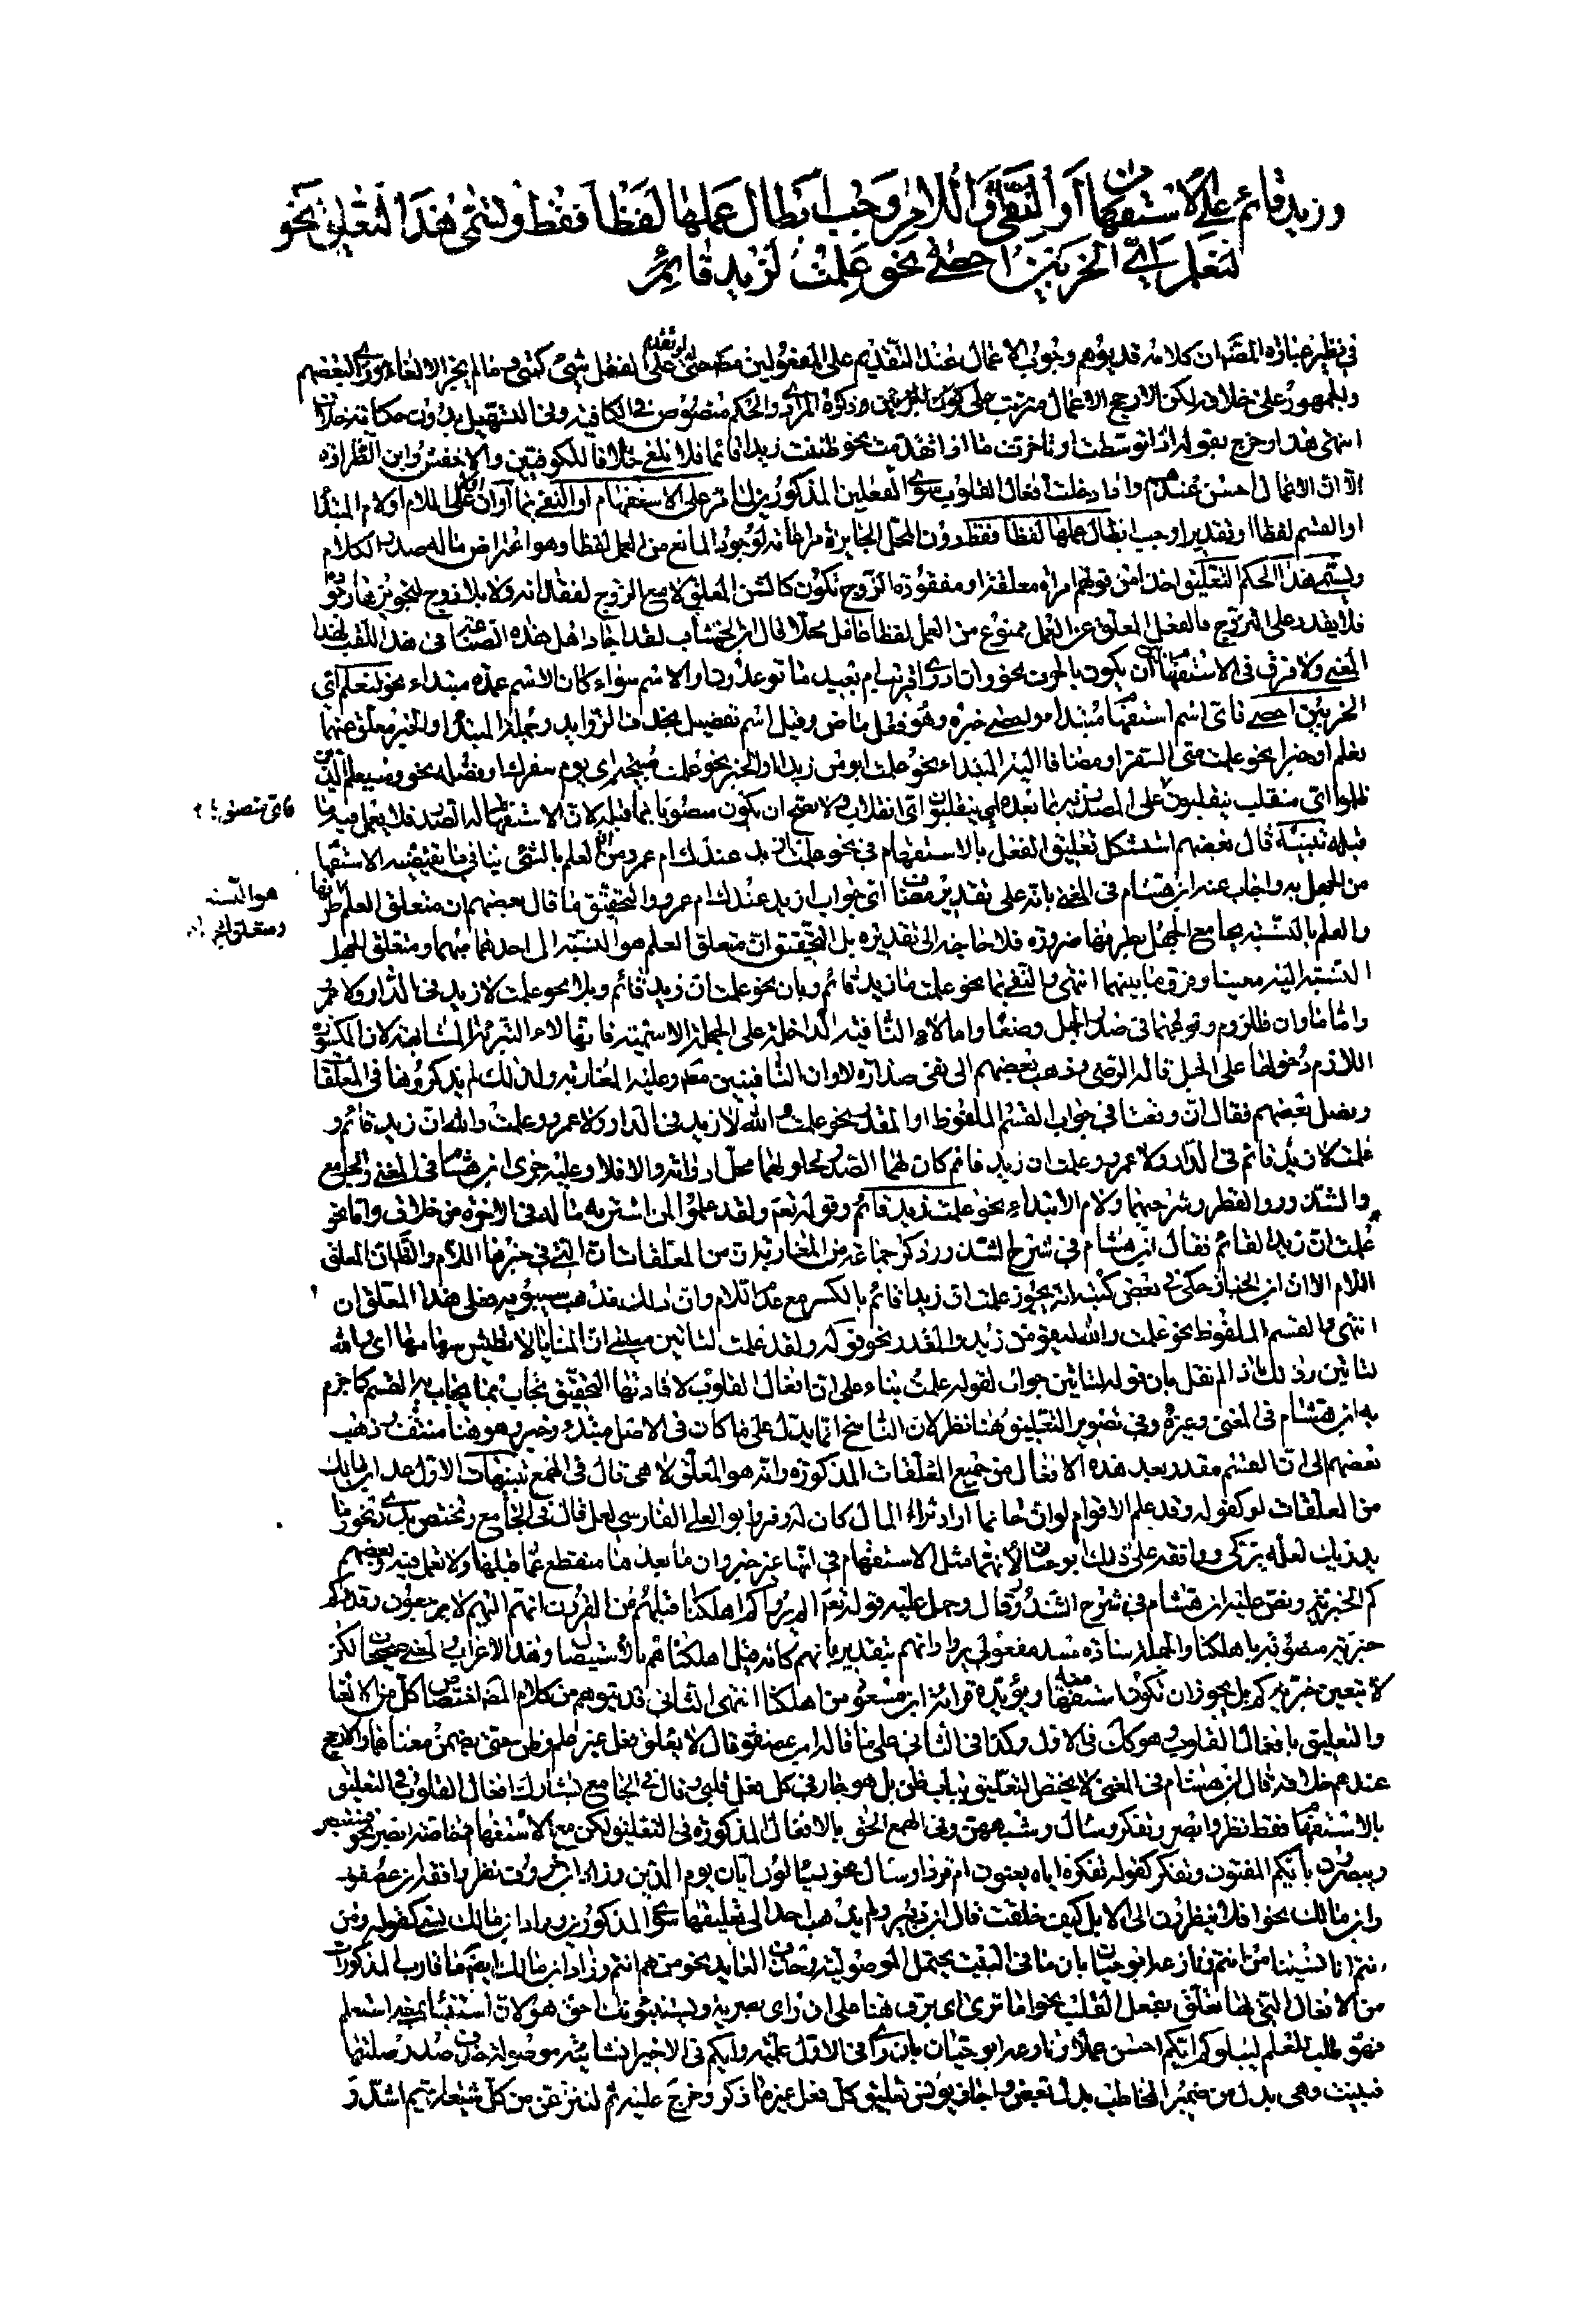 وزيد قائم على الاستفهام أو النفي أو اللام وجب ابطال عملها لفظا فقط ويسمى هذا التعليق نحو
لنعلم اي الحزبين احصى نحو علمت لزيد قائم
في نظير عبارة المصنف ان كلامه قد يوهم وجوب الاعمال عند التقديم على المفعولين حتى لو تقدم على الفعل شيء كمتى وما لم يجز الالغاء
والجمهور على خلافه لكن الارجح الاعمال والحكم منصوص في الكافية وفي التسهيل بدون حكاية خلاف
انتهى هذا وخرج بقوله اذا توسطت او تاخرت ما اذا تقدمت نحو ظننت زيدا قائما فلا تلغى خلافا للكوفيين والاخفش وابن الطراوة
الا ان الاعمال احسن عندهم واذا دخلت افعال القلوب سوى الفعلين المذكورين على الاستفهام أو النفي بما أو ان أو على اللام أو لام المبتدأ
او القسم لفظا او تقديرا وجب ابطال عملها لفظا فقط دون المحل لوجود المانع من العمل لفظا وهو اعتراض ماله صدر الكلام
ويسمى هذا الحكم التعليق اخذا من قولهم امراة معلقة او مفقودة الزوج تكون كالشئ المعلق لا مع الزوج لفقدانه ولا بلا زوج لتجويزها وجوده
فلا تقدر على التزوج فالفعل المعلق عن العمل ممنوع من العمل لفظا عامل محلا قال ابن الخشاب لقد اجاد اهل هذه الصناعة في هذا اللقب لهذا
المعنى ولا فرق في الاستفهام ان يكون بالحرف نحو وان ادري اقريب ام بعيد ما توعدون او الاسم سواء كان الاسم عمدة مبتداء نحو لنعلم اي
الحزبين احصى فاي اسم استفهام مبتدا واحصى خبره وهو فعل ماض وقيل اسم تفضيل بحذف الزوايد وجملة المبتدا والخبر معلق عنها
نعلم او خبرا نحو علمت متى السفر او مضافا اليه المبتداء نحو علمت ابو من زيد او الخبر نحو علمت صبيحة اي يوم سفرك او فضلة نحو وسيعلم الذين
ظلموا اي منقلب ينقلبون على المصدرية بما بعده اي ينقلبون اي انقلاب ولا يصح ان يكون منصوبا بما قبله لان الاستفهام له الصدر فلا يعمل فيه ما
قبله تنبيه قال بعضهم استشكل تعليق الفعل بالاستفهام في نحو علمت ازيد عندك ام عمرو من ان العلم بالشئ ينافي ما يقتضيه الاستفهام
من الجهل به واجاب عنه ابن هشام في المغني بانه على تقدير مضاف اي جواب ازيد عندك ام عمرو والتحقيق ما قال بعضهم ان متعلق العلم
والعلم بالنسبة يجامع الجهل بطرفها ضرورة فلا حاجة الى تقديره بل التحقيق ان متعلق العلم هو النسبة الى احدهما مبهما ومتعلق الجهل
النسبة اليه معينا وفرق ما بينهما انتهى والنفي بما نحو علمت ما زيد قائم وبان نحو علمت ان زيد قائم وبلا نحو علمت لا زيد في الدار ولا عمرو
واما ما وان فللزوم وقوعهما في صدر الجمل وضعا واما لا النافية الداخلة على الجملة الاسمية فانها لاء التبرئة المشابهة لان المكسورة
اللازم دخولها على الجمل قاله الرضي وذهب بعضهم الى نفي صدارة لا وان النافيتين وعليه المغاربة ولذلك لم يذكروهما في المعلقات
وفصل بعضهم فقال ان وقعتا في جواب القسم الملفوظ او المقدر نحو علمت والله لا زيد في الدار ولا عمرو وعلمت والله ان زيد قائم و
علمت لا زيد قائم في الدار ولا عمرو وعلمت ان زيد قائم كان لهما الصدر لحلولهما محل ادواته والا فلا وعليه جرى ابن هشام في المغني والجامع
والشذور والقطر وشرحيهما ولام الابتداء نحو علمت لزيد قائم وقوله تعالى ولقد علموا لمن اشتريه ماله في الاخرة من خلاق واما نحو
علمت ان زيدا لقائم فقال ابن هشام في شرح الشذور وذكر جماعة من المغاربة ان من المعلقات ان التي في خبرها اللام والظاهر ان المعلق
اللام الا ان ابن الخباز حكى في بعض كتبه انه يجوز علمت ان زيدا قائم بالكسر مع عدم اللام وان ذلك مذهب سيبويه فعلى هذا المعلق ان
انتهى والقسم الملفوظ نحو علمت والله ليقومن زيد والمقدر نحو قوله ولقد علمت لتاتين منيتي ان المنايا لا تطيش سهامها اي والله
لتاتين وذلك اذا لم نقل بان قوله لتاتين جواب لقوله علمت بناء على ان افعال القلوب لافادتها التحقيق تجاب بما يجاب به القسم كما جزم
به ابن هشام في المغني وغيره وفي تصوير التعليق هنا نظر لان الناسخ انما يدخل على ما كان في الاصل مبتدء وخبر وهو هنا منتف وذهب
بعضهم الى ان القسم مقدر بعد هذه الافعال من جميع المعلقات المذكورة وانه هو المعلق لا هي قال في الهمع تنبيهات الاول عد ابن مالك
من المعلقات لو كقوله وقد علم الاقوام لو ان حاتما اراد ثراء المال كان له وفر وابو العلي الفارسي لعل قال في الجامع وتختص بدري نحو وما
يدريك لعله يزكى ووافقه على ذلك ابو حيان لانهما مثل الاستفهام في انها غير خبر وان ما بعدها منقطع عما قبلها ولا تعمل فيه وبعضهم
كم الخبرية ونص عليه ابن هشام في شرح الشذور وقال وحمل عليه قوله تعالى الم يروا كم اهلكنا قبلهم من القرون انهم اليهم لا يرجعون وقدر كم
خبرية منصوبة باهلكنا والجملة سادة مسد مفعولي يروا وانهم بتقدير بانهم كانه قيل اهلكناهم بالاستيصال وهذا الاعراب صحيح لكن
لا يتعين خبرية كم بل يجوز ان تكون استفهامية ويؤيده قرائة ابن مسعود من اهلكنا انتهى الثاني قد يتوهم من كلام المصنف اختصاص كل من الالغاء
والتعليق بافعال القلوب وهو كك في الاول وكذا في الثاني على ما قاله ابن عصفور قال لا يعلق فعل غير علم وظن حتى يضمن معناهما والارجح
عندهم خلافه قال ابن هشام في المغني لا يختص التعليق بباب ظن بل هو جار في كل فعل قلبي وقال في الجامع تشارك افعال القلوب في التعليق
بالاستفهام فقط نظر وابصر وتفكر وسال وشبههن وفي الهمع الحق بالافعال المذكورة في التعليق لكن مع الاستفهام خاصة ابصر نحو فستبصر
ويبصرون بايكم المفتون وتفكر كقوله تفكر اياه يعنون ام قردا وسال نحو يسالون ايان يوم الدين وزاد ابن خروف نظر وافقه ابن عصفور
وابن مالك نحو افلا ينظرون الى الابل كيف خلقت قال ابن الزبير ولم يذهب احد الى تعليقها سوى المذكورين وزاد ابن مالك نسي كقوله ومن
انتم انا نسينا من انتم ونازعه ابو حيان بان ما في البيت يحتمل الموصولية وحذف العايد نحو من هم انتم وزاد ابن مالك ايضا ما قارب المذكورات
من الافعال التي لها تعلق بفعل القلب نحو اما ترى اي برق هنا على ان راى بصرية ويستنبؤنك احق هو لان استنبأ بمعنى استعلم
فهو طلب للعلم ليبلوكم ايكم احسن عملا ونازعه ابو حيان بان ترى في الاول علمية وايكم في الاخير موصولة حذف صدر صلتها
فبنيت وهي بدل من ضمير المخاطب بدل بعض واجاز يونس تعليق كل فعل غير ما ذكر وخرج عليه ثم لننزعن من كل شيعة ايهم اشد و
فاي منصوب
هو النسبة
ومتعلق الجهل